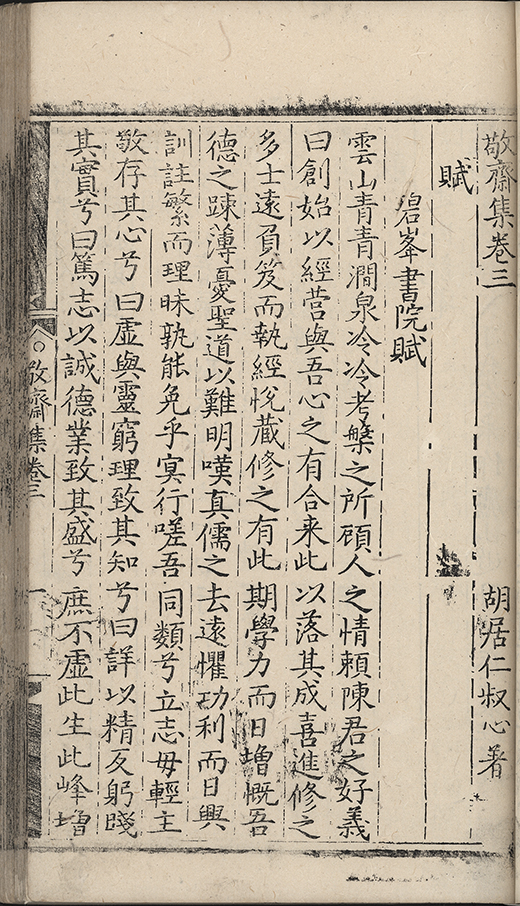 敬齋集卷三
胡居仁叔心著
賦
碧峯書院賦
雲山青青澗泉冷冷考槃之所頋人之情頼陳君之好義
曰創始以經营與吾心之有合来此以落其成喜進修之
多士遠負笈而執經悅藏修之有此期學力而日增慨吾
德之踈薄憂聖道以難明嘆真儒之去遠懼功利而日興
訓註繁而理昧孰能免乎冥行嗟吾同類兮立志毋輕主
敬存其心兮曰虛與靈窮理致其知兮曰詳以精反躬踐
其實兮曰篤志以誠德業致其盛兮庶不虛此生此峰增
敬齋集卷三